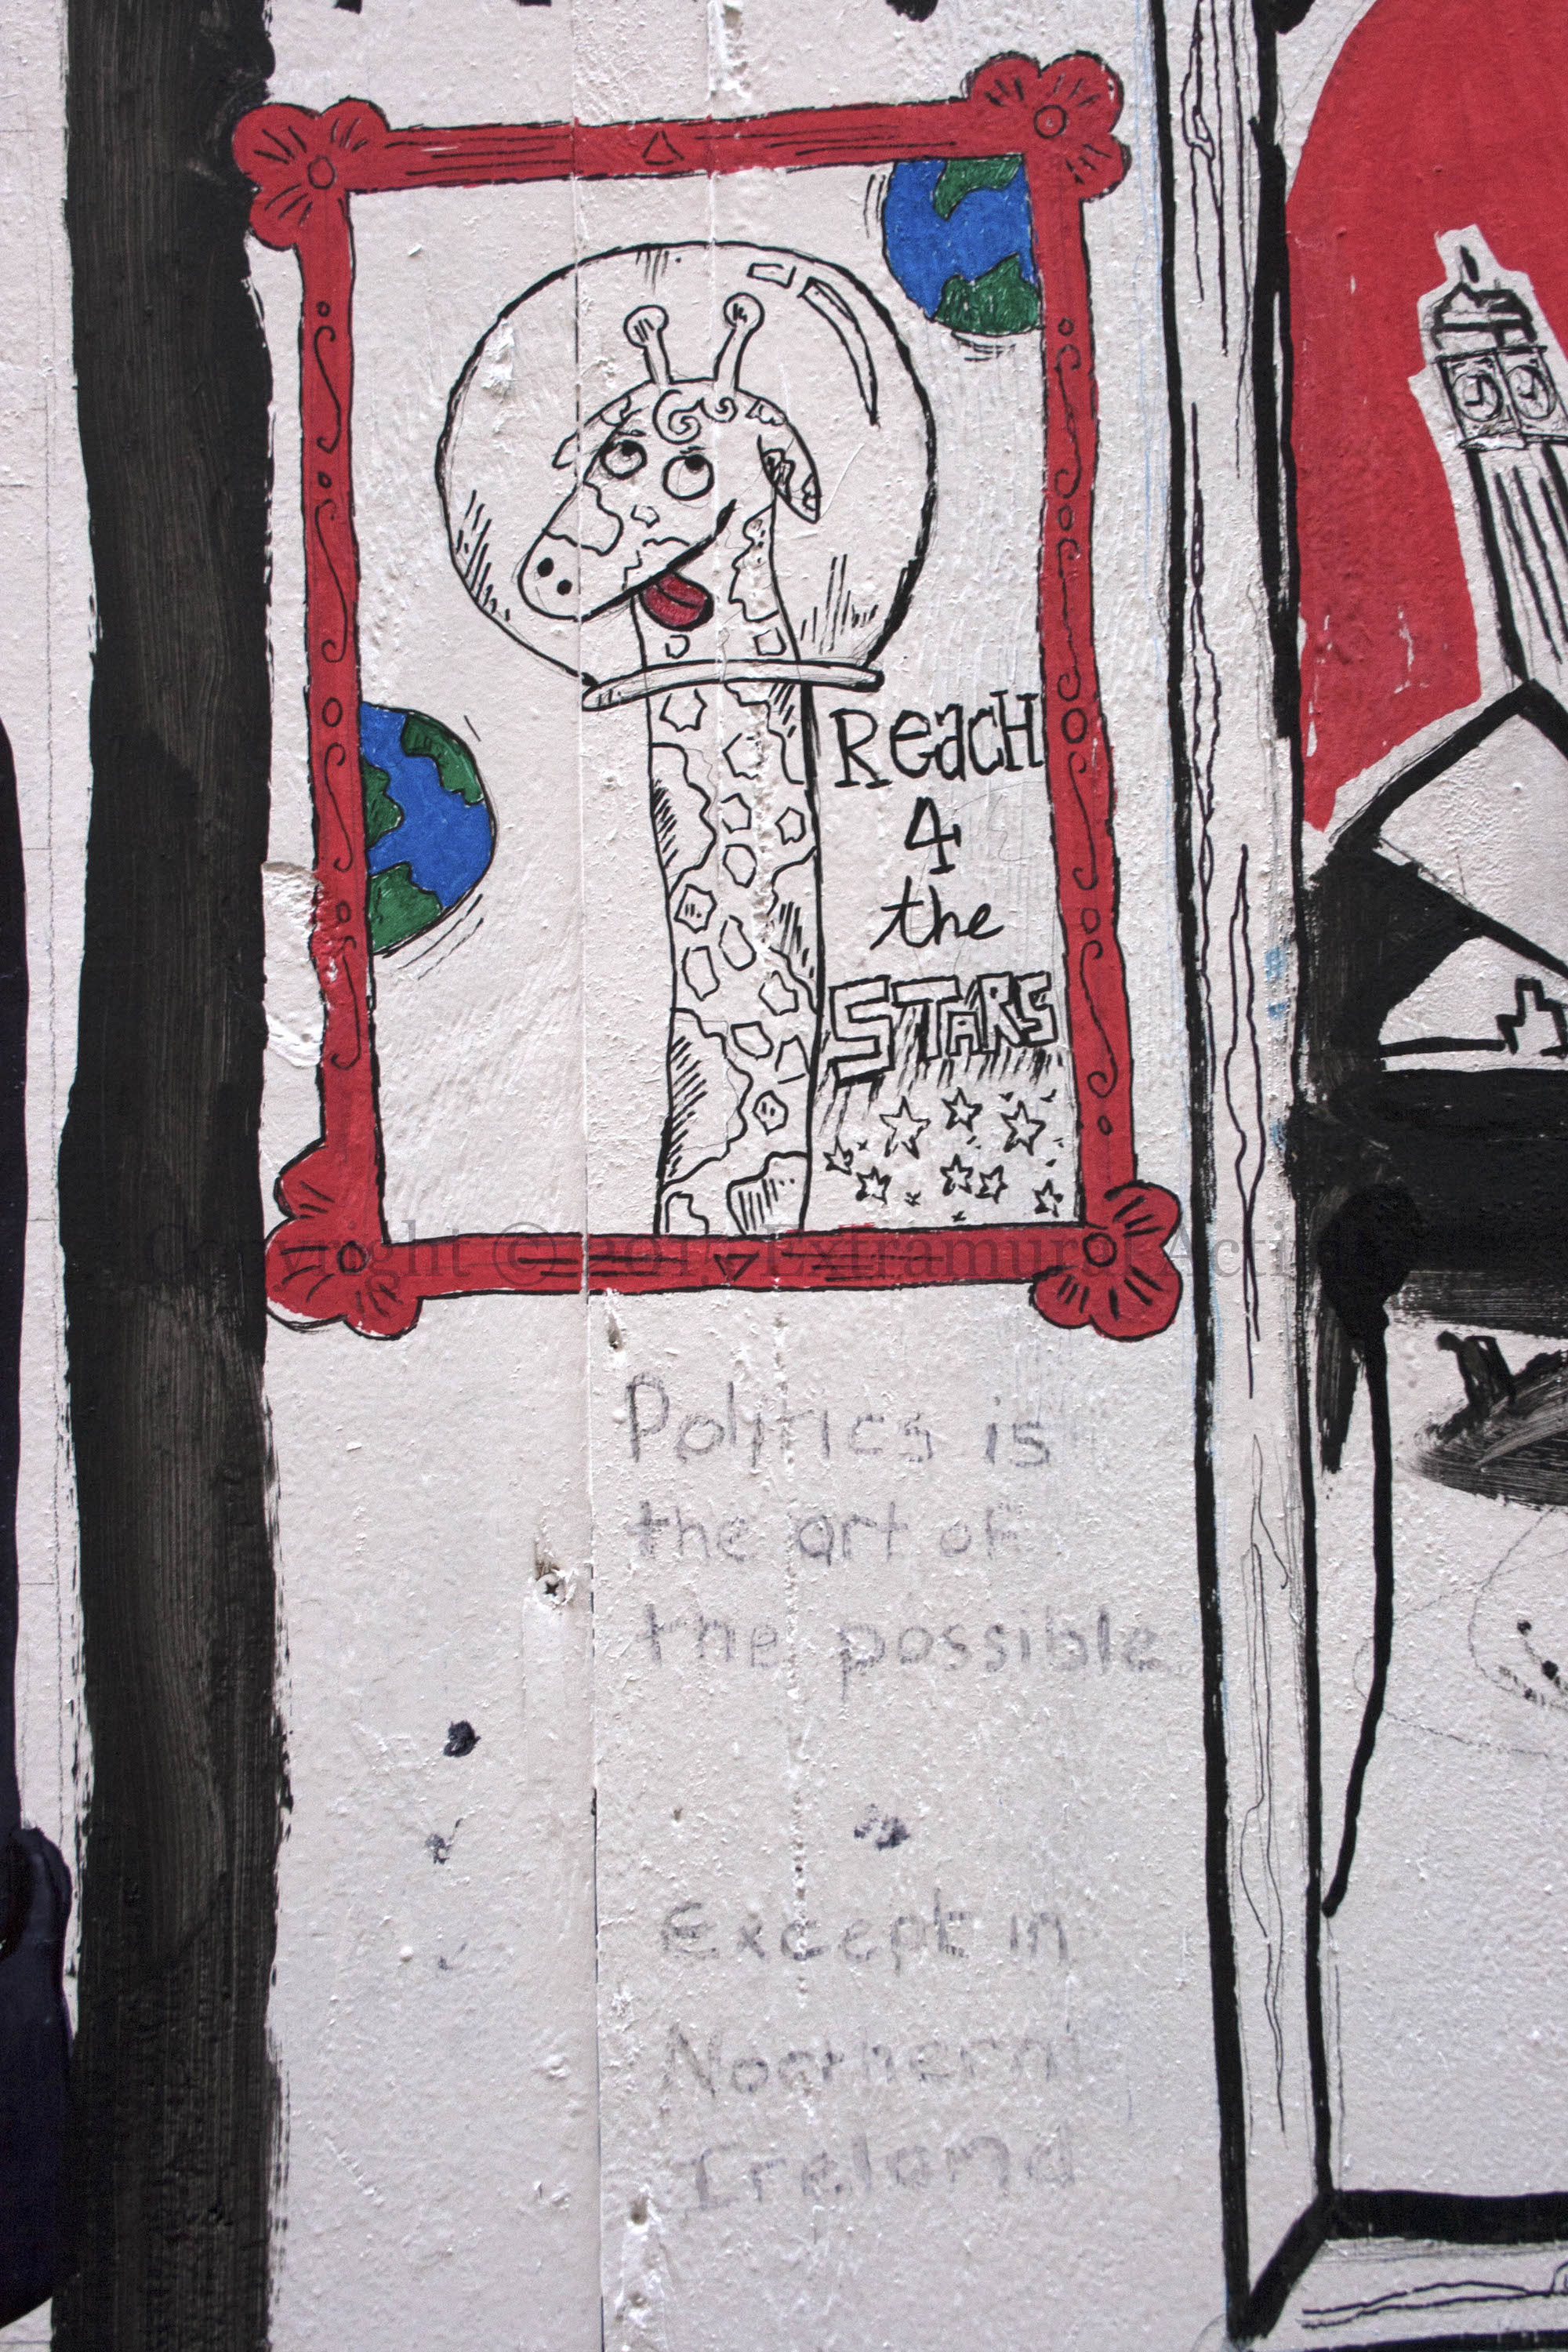 Reach
4
the
STARS
Copyright © 2015 Extramural Activity
Politics is
the art of
the possible
Except in
Noothern
Ireland